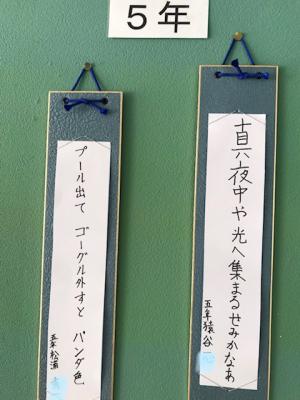 5年
真夜中や光へ集まるせみかなぁ
五年 猿谷
プール出て ゴーグル外すと パンダ色
五年 松浦